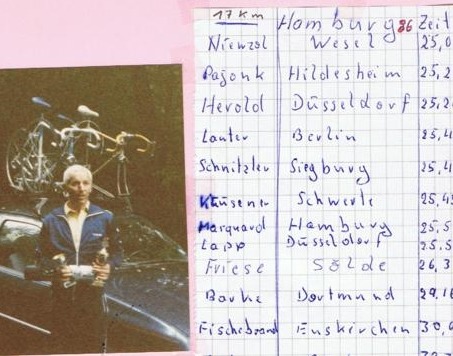 17 Km Hamburg 86 Zeit
Niewzol Wesel 25,0
Pajonk Hildesheim 25,2
Herold Düsseldorf 25,2
Lauter Berlin 25,4
Schnitzler Siegburg 25,4
Schwerte 25,45
Marquard Hamburg 25,5
Lapp Düsseldorf 25.5
Friese Sölde 26,3
Barke Dortmund 29,16
Fischebrand Euskirchen 30,0